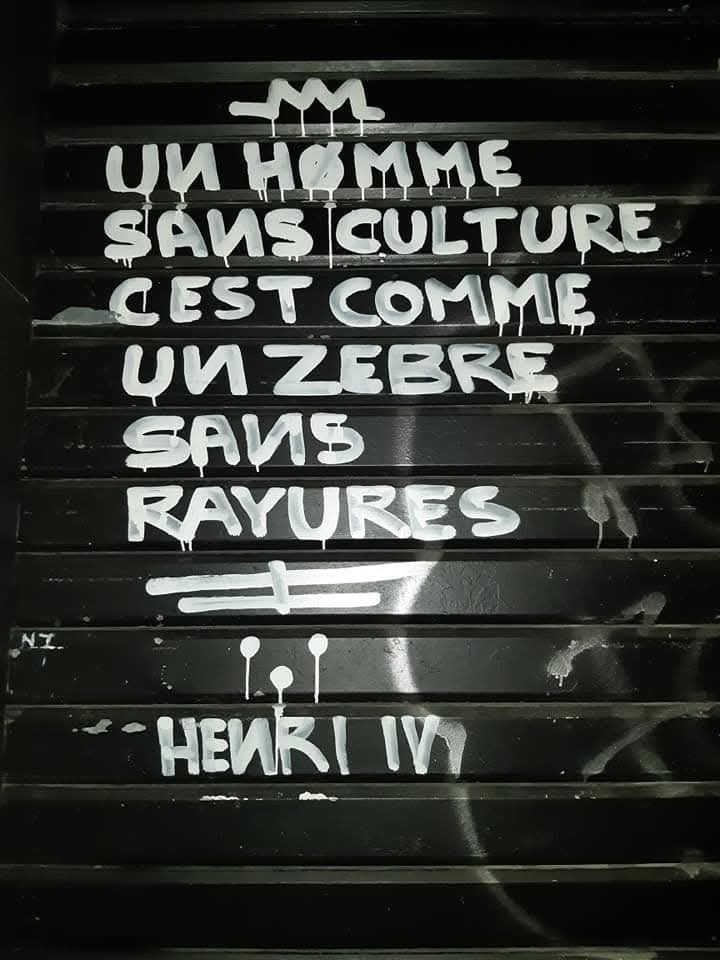 UN HØMME
SANS CULTURE
C EST COMME
UN ZEBRE
SANS
RAYURES
N I
HENRI IV